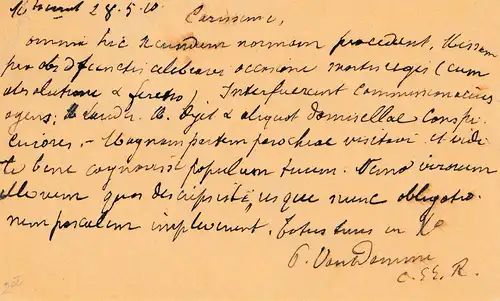 28.5.10
Carissime,
omnia hic secundum normam procedunt. Missam
pro defunctis celebravi occasione mortis regis (cum
absolutione & feretro). Interfuerunt Commissionarius
agens, & aliquot domicellae conspi-
cuiores. - Magnam partem parochiae visitavi et vidi
te bene cognovisse populum tuum. Nemo verorum
illorum quos descripsisti, usque nunc obligatio-
nem paschalem impleverunt. Totus tuus in Xo
P. Van Damme
C.SS.R.